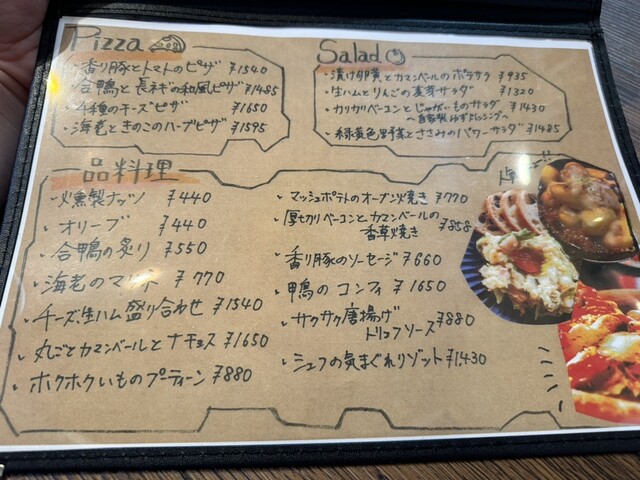 Pizza
・香り豚とトマトのピザ ¥1540
・合鴨と長ネギの和風ピザ ¥1485
・4種のチーズピザ ¥1650
・海老ときのこのハーブピザ ¥1595
Salad
・漬け卵黄とカマンベールのポテサラ ¥935
・生ハムとりんごの麦芽サラダ ¥1320
・カリカリベーコンとじゃがいものサラダ ¥1430
～自家製ゆずドレッシング～
・緑黄色野菜とささみのパワーサラダ ¥1485
品料理
・燻製ナッツ ¥440
・オリーブ ¥440
・合鴨の炙り ¥550
・海老のマリネ ¥770
・チーズ、生ハム盛り合わせ ¥1540
・丸ごとカマンベールとナチョス ¥1650
・ホクホクいものプーティーン ¥880
・マッシュポテトのオーブン焼き ¥770
・厚切りベーコンとカマンベールの
香草焼き ¥858
・香り豚のソーセージ ¥660
・鴨のコンフィ ¥1650
・サクサク唐揚げ
トリュフソース ¥880
・シェフの気まぐれリゾット ¥1,430